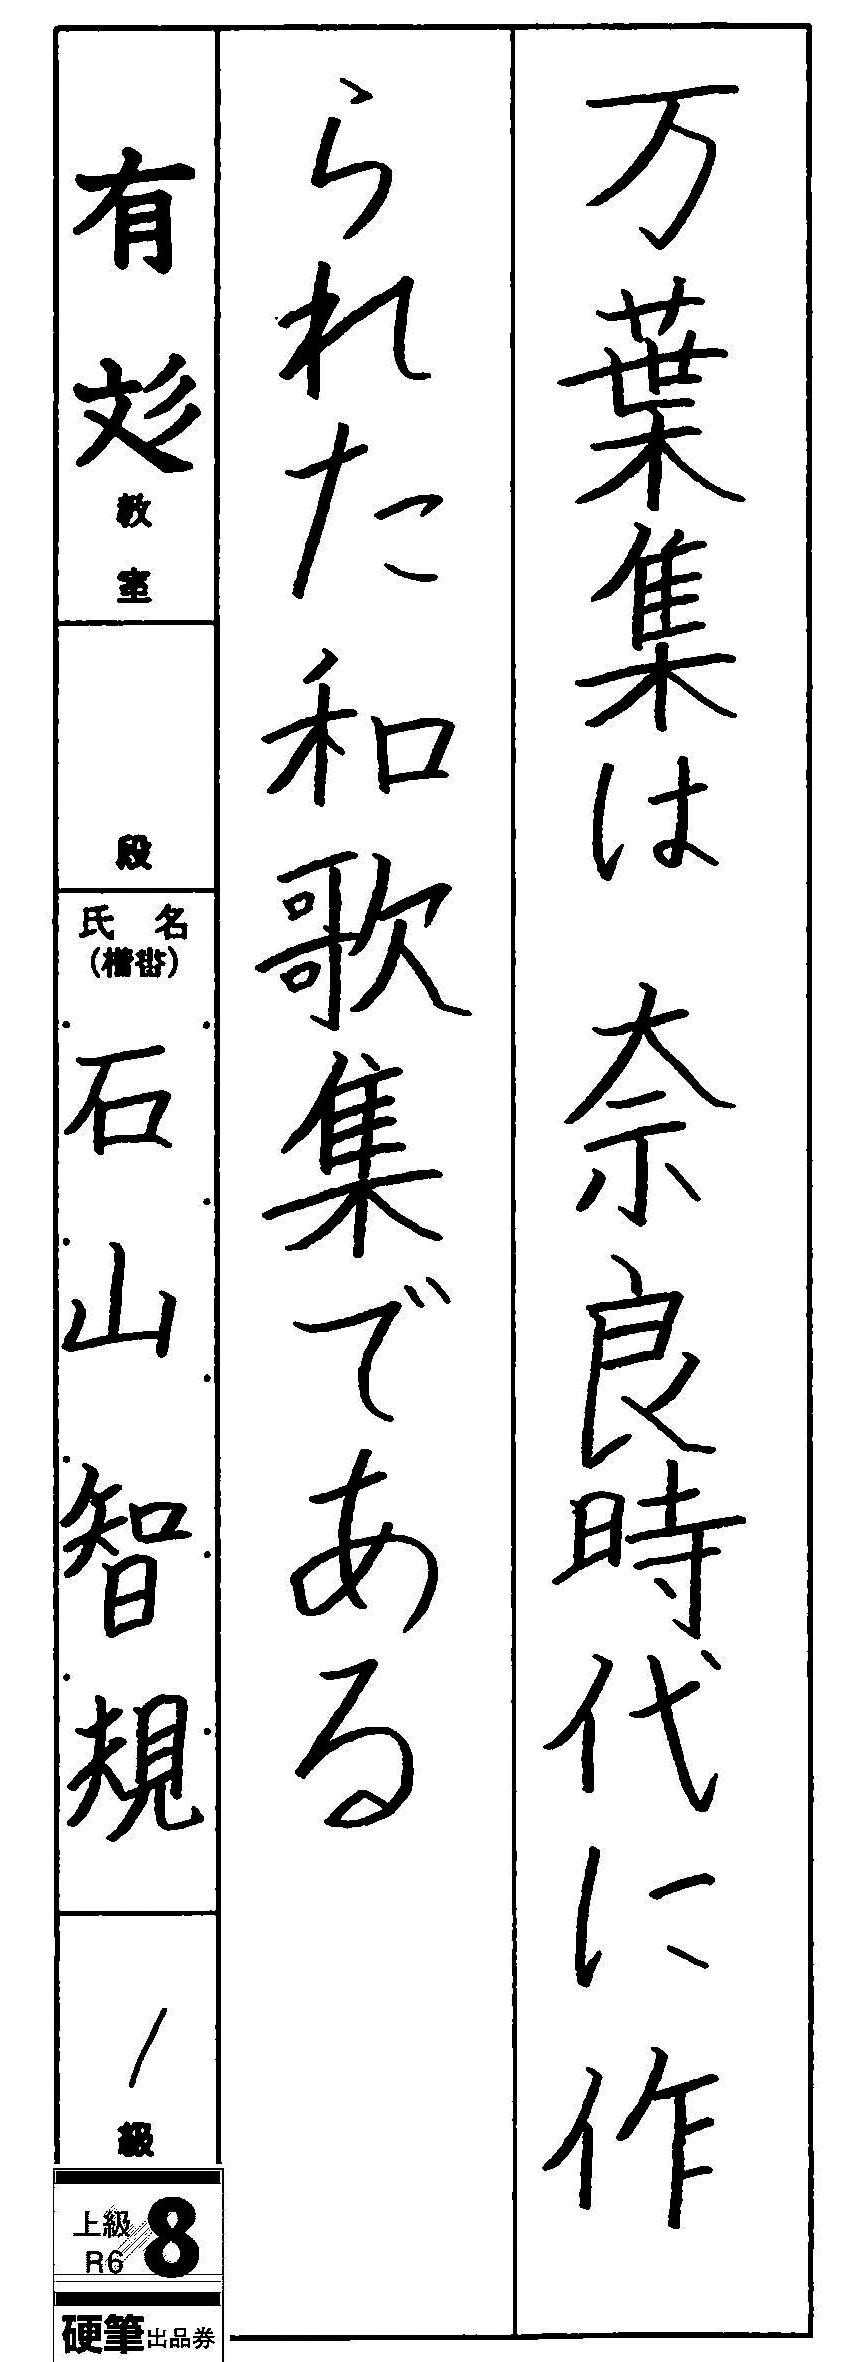 万葉集は 奈良時代に作
られた和歌集である
有彣
教室
段
氏名
(楷書)
石山智規
1
級
上級 8
R6
硬筆出品券